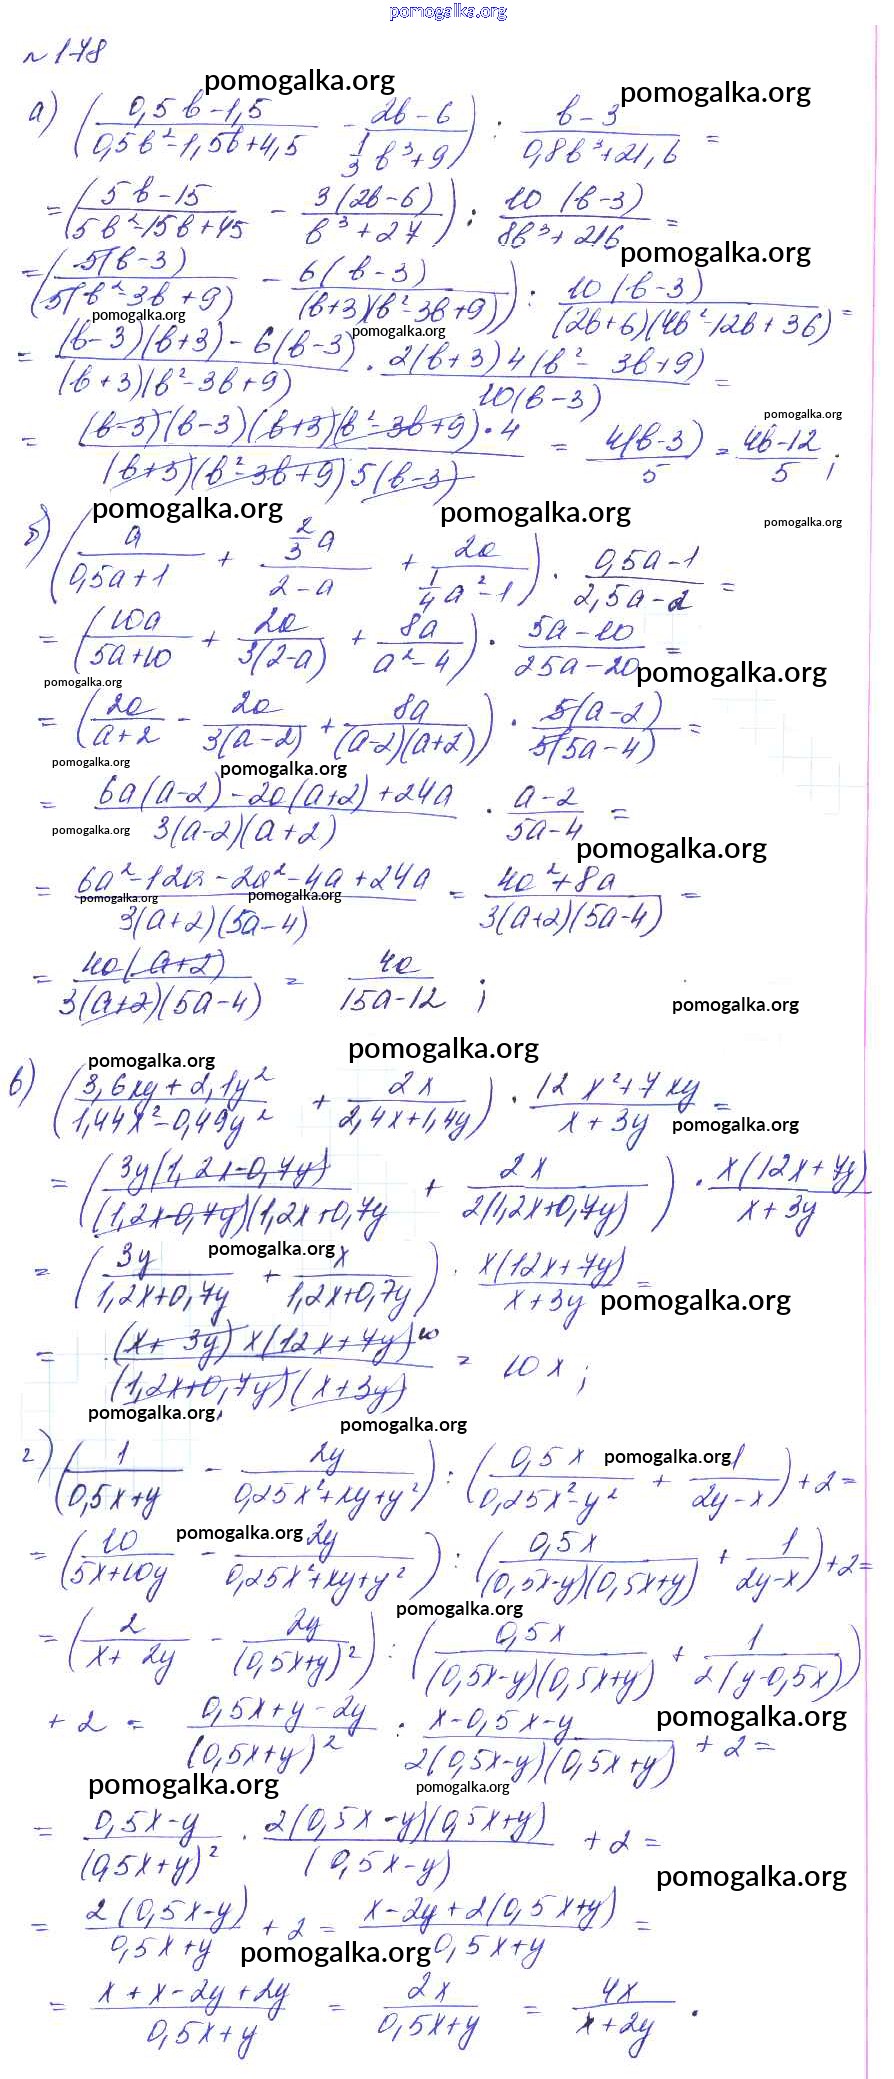 pomogalka.org
№ 178
pomogalka.org pomogalka.org
а) ((0,5b-1,5)/(0,5b²-1,5b+4,5) - (2b-6)/(1/3 b³+9)) : (b-3)/(0,8b³+21,6) =
= ((5b-15)/(5b²-15b+45) - 3(2b-6)/(b³+27)) : 10(b-3)/(8b³+216) =
pomogalka.org
= (5(b-3)/(5(b²-3b+9)) - 6(b-3)/((b+3)(b²-3b+9))) : 10(b-3)/((2b+6)(4b²-12b+36) =
pomogalka.org pomogalka.org
= ((b-3)(b+3)-6(b-3))/((b+3)(b²-3b+9)) · 2(b+3)4(b²-3b+9)/(10(b-3)) =
pomogalka.org
= (b-3)(b-3)(b+3)(b²-3b+9)·4/((b+3)(b²-3b+9)5(b-3)) = 4(b-3)/5 = (4b-12)/5 ;
pomogalka.org pomogalka.org pomogalka.org
б) (a/(0,5a+1) + (2/3 a)/(2-a) + 2a/(1/4 a²-1)) · (0,5a-1)/(2,5a-2) =
= (10a/(5a+10) + 2a/(3(2-a)) + 8a/(a²-4)) · (5a-10)/(25a-20) =
pomogalka.org pomogalka.org
= (2a/(a+2) - 2a/(3(a-2)) + 8a/((a-2)(a+2))) · 5(a-2)/(5(5a-4)) =
pomogalka.org pomogalka.org
= (6a(a-2)-2a(a+2)+24a)/(3(a-2)(a+2)) · (a-2)/(5a-4) =
pomogalka.org pomogalka.org
= (6a²-12a-2a²-4a+24a)/(3(a+2)(5a-4)) = (4a²+8a)/(3(a+2)(5a-4)) =
pomogalka.org pomogalka.org
= 4a(a+2)/(3(a+2)(5a-4)) = 4a/(15a-12) ;
pomogalka.org
pomogalka.org pomogalka.org
в) ((3,6xy+2,1y²)/(1,44x²-0,49y²) + 2x/(2,4x+1,4y)) · (12x²+7xy)/(x+3y) =
pomogalka.org
= (3y(1,2x-0,7y)/((1,2x-0,7y)(1,2x+0,7y) + 2x/(2(1,2x+0,7y))) · x(12x+7y)/(x+3y)
pomogalka.org
= (3y/(1,2x+0,7y) + x/(1,2x+0,7y)) · x(12x+7y)/(x+3y) =
pomogalka.org
= (x+3y)x(12x+7y)10/((1,2x+0,7y)(x+3y)) = 10x ;
pomogalka.org pomogalka.org
г) (1/(0,5x+y) - 2y/(0,25x²+xy+y²)) : (0,5x/(0,25x²-y²) + 1/(2y-x)) + 2 =
pomogalka.org
= (10/(5x+10y) - 2y/(0,25x²+xy+y²)) : (0,5x/((0,5x-y)(0,5x+y)) + 1/(2y-x)) + 2 =
pomogalka.org
pomogalka.org
= (2/(x+2y) - 2y/(0,5x+y)²) : (0,5x/((0,5x-y)(0,5x+y)) + 1/(2(y-0,5x)))
+ 2 = (0,5x+y-2y)/(0,5x+y)² : (x-0,5x-y)/(2(0,5x-y)(0,5x+y)) + 2 =
pomogalka.org
pomogalka.org pomogalka.org
= (0,5x-y)/(0,5x+y)² · 2(0,5x-y)(0,5x+y)/(0,5x-y) + 2 =
pomogalka.org
= 2(0,5x-y)/(0,5x+y) + 2 = (x-2y+2(0,5x+y))/(0,5x+y) =
pomogalka.org
= (x+x-2y+2y)/(0,5x+y) = 2x/(0,5x+y) = 4x/(x+2y) .